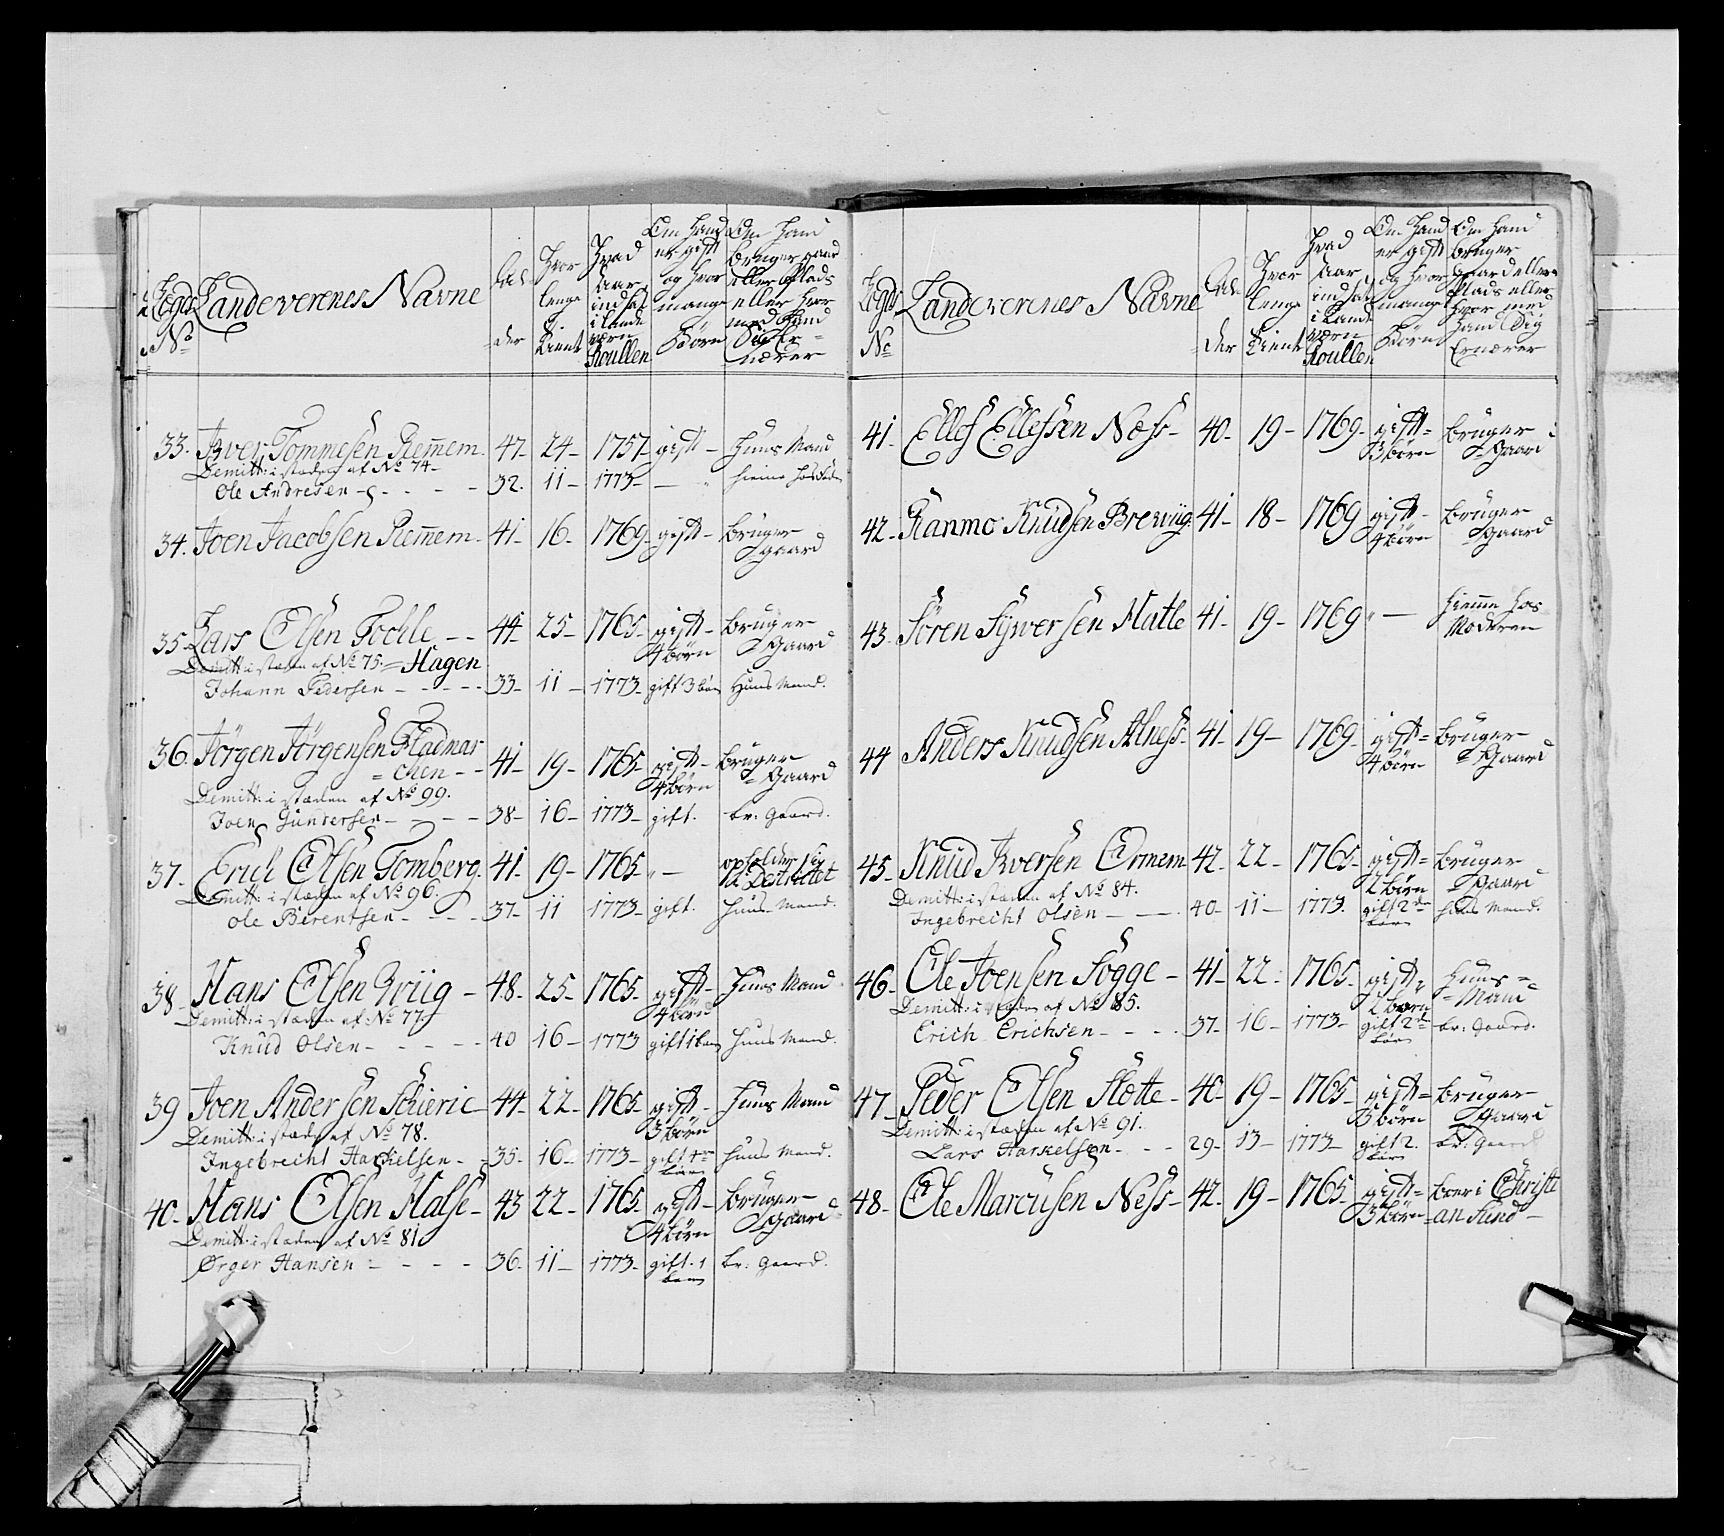 Legds No
Landeverenes Navne
Al-der
Hvor lenge tient
Hvad Aar indsat i Lande værn Roullen
Om Hand er gift og hvor mange Börn
Om Hand bruger gaard eller Plads eller hvor med Hand Sig Ernærer
33. Iver Tommesen Remem. 47- 24- 1757- gift- Huus Mand
Demitt: i stæden af No 74-
Ole Andresen 32. 11- 1773- hieme hos
34. Joen Jacobsen Remem. 41- 16- 1769- gift- bruger
gaard
35. Lars Olsen Tochle -- 44- 25- 1765- gift- bruger
4 börn Gaard
Demitt: i stæden af No 75. = Hagen
Johann Pedersen ---- 33- 11- 1773- gift 3 börn Huus Mand.
36. Jörgen Jörgensen Fladmar
= chen -- 41- 19- 1765- gift- bruger
4 börn = Gaard
Demitt: i stæden af No 99.
Joen Gundersen ---- 38- 16- 1773- gift. br: Gaard.
37. Erich Olsen Tomberg. 41- 19- 1765 " - opholder sig
Demitt: i stæden af No 96.
Ole Berentsen ---- 37- 11 1773- gift. Huus Mand.
38- Hans Olsen Wiig - 48- 25- 1765- gift- Huus Mand
4 börn
Demitt: i stæden af No 77.
Knud Olsen ---- 40 16- 1773 gift 1 barn Huus Mand.
39 Joen Andersen Schierie 44- 22- 1765- gift- Huus Mand
3 börn
Demitt: i stæden af No 78.
Ingebrecht Harkelsen -- 35- 16- 1773- gift Huus Mand.
40- Hans Olsen Halse - 43 22- 1765- gift- bruger
4 börn Gaard
Demitt: i stæden af No 81.
Ørger Hansen ---- 36- 11- 1773- gift. 1 barn br: Gaard.
Legds No
Landeverenes Navne
Al-der
Hvor lenge tient
Hvad Aar indsat i Lande værn Roullen
Om Hand er gift og hvor mange Börn
Om Hand bruger Gaard eller Plads eller hvor med Hand Sig Ernærer
41- Ellef Ellefsen Næss- 40- 19- 1769- gift= bruger
3 börn = Gaard
42- Ranmo Knudsen Brewiig 41- 18- 1769 gift- bruger
4 börn = Gaard
43- Sören Sywersen Hatle 41- 19- 1769 " - hiemme hos
Moderen
44 Anders Knudsen Alness- 41- 19- 1769- gift= bruger
4 börn = Gaard
45- Knud Iversen Ormem 42- 22- 1765- gift= bruger
2 börn Gaard
Demitt: i stæden af No 84.
Ingebrecht Olsen --- 40- 11- 1773. gift 2de börn Huus Mand.
46- Ole Joensen Sogge - 41- 22- 1765- gift= Huus=
2 börn = Mand
Demitt: i stæden af No 85.
Erich Erichsen ---- 37- 16- 1773- gift 2de börn br: Gaard.
47- Peder Olsen Slotte - 40- 19- 1765- gift= bruger
3 börn Gaard
Demitt: i stæden af No 91.
Lars Harkelsen --- 29- 13- 1773- gift 2. börn br: Gaard
48- Ole Marcusen Ness- 42- 19- 1765- gift= boer i Christi
3 börn = an Sund-